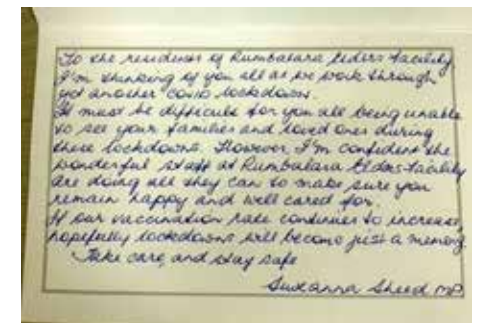 To the residents of Rumbalara Elders Facility
I'm thinking of you all as we work through
yet another covid lockdown.
It must be difficult for you all being unable
to see your families and loved ones during
these lockdowns. However, I'm confident the
wonderful staff at Rumbalara Elders Facility
are doing all they can to make sure you
remain happy and well cared for.
If our vaccination rate continues to increase,
hopefully lockdowns will become just a memory.
Take care, and stay safe
Suzanna Sheed MP